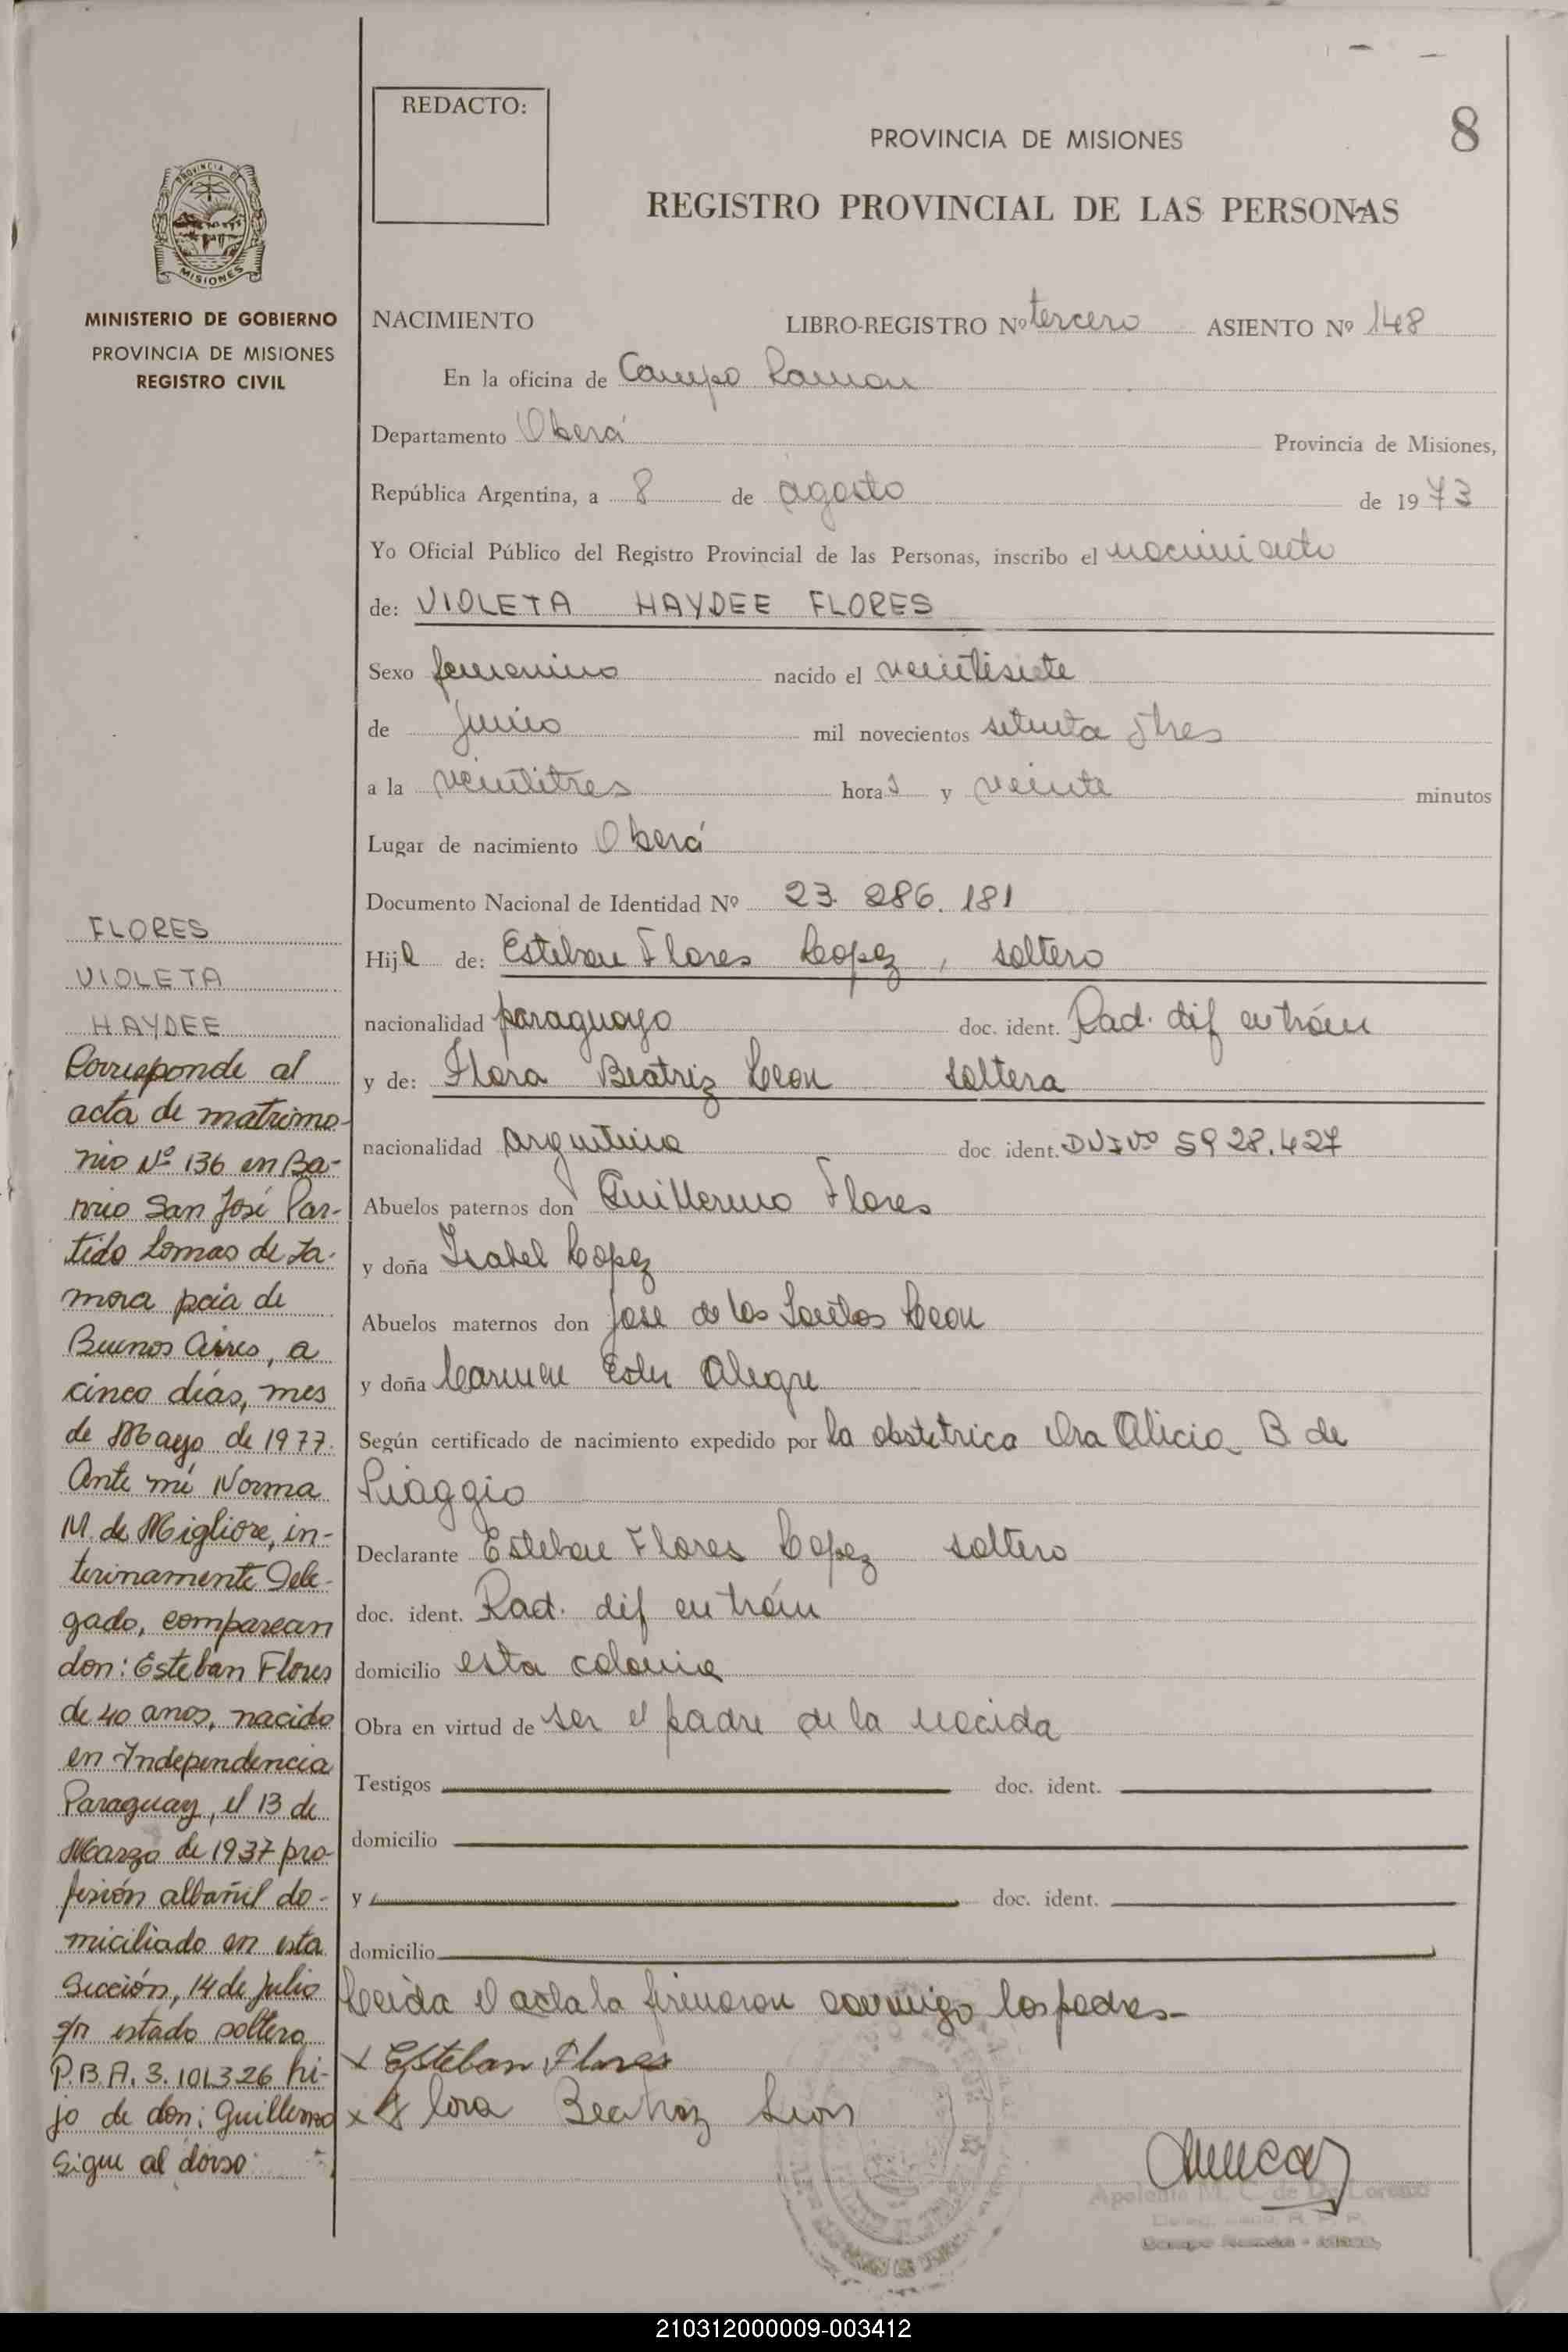 REDACTO:
PROVINCIA DE MISIONES
8
REGISTRO PROVINCIAL DE LAS PERSONAS
PROVINCIA DE
MISIONES
MINISTERIO DE GOBIERNO
PROVINCIA DE MISIONES
REGISTRO CIVIL
NACIMIENTO LIBRO-REGISTRO Nº tercero ASIENTO Nº 148
En la oficina de Campo Ramon
Departamento Oberá Provincia de Misiones,
República Argentina, a 8 de agosto de 1973
Yo Oficial Público del Registro Provincial de las Personas, inscribo el nacimiento
de: VIOLETA HAYDEE FLORES
Sexo femenino nacido el veintisiete
de junio mil novecientos setenta y tres
a la veintitres horas y veinte minutos
Lugar de nacimiento Oberá
Documento Nacional de Identidad Nº 23.286.181
Hija de: Esteban Flores Lopez, soltero
nacionalidad paraguayo doc. ident. Rad. dif en trám
y de: Flora Beatriz Leon soltera
nacionalidad argentina doc ident. DNI Nº 5928.427
Abuelos paternos don Guillermo Flores
y doña Isabel Lopez
Abuelos maternos don Jose de los Santos Leon
y doña Carmen Ester Alegre
Según certificado de nacimiento expedido por la obstetrica Dra Alicia B de
Piaggio
Declarante Esteban Flores Lopez soltero
doc. ident. Rad. dif en trám
domicilio esta colonia
Obra en virtud de ser el padre de la nacida
Testigos doc. ident.
domicilio
y doc. ident.
domicilio
Leida el acta la firmaron conmigo los padres-
x Esteban Flores
x Flora Beatriz Leon
Apolonia M. C. de De Lorenzo
FLORES
VIOLETA
HAYDEE
Corresponde al
acta de matrimo-
nio Nº 136 en Ba-
rrio San José Par-
tido Lomas de Za-
mora pcia de
Buenos Aires, a
cinco días, mes
de Mayo de 1977.
Ante mí Norma
M. de Migliore, in-
terinamente Dele-
gado, comparecen
don: Esteban Flores
de 40 anos, nacido
en Independencia
Paraguay, el 13 de
Marzo de 1937 pro-
fesión albañil do-
miciliado en esta
Sección, 14 de Julio
s/n estado soltero
P.B.A. 3.101.326 hi-
jo de don: Guillermo
Sigue al dorso:
210312000009-003412